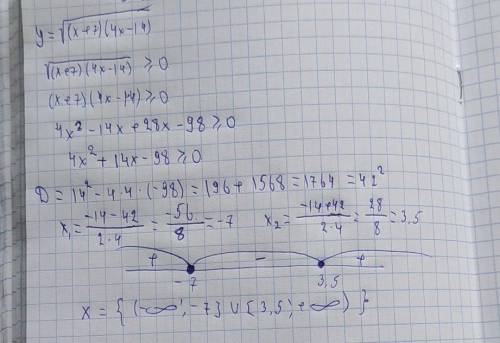 y = √(x+7)(4x-14)
√(x+7)(4x-14) ≥ 0
(x+7)(4x-14) ≥ 0
4x² - 14x + 28x - 98 ≥ 0
4x² + 14x - 98 ≥ 0
D = 14² - 4·4·(-98) = 196 + 1568 = 1764 = 42²
x₁ = (-14-42)/(2·4) = -56/8 = -7 x₂ = (-14+42)/(2·4) = 28/8 = 3,5
+ - +
-7 3,5
x = { (-∞; -7] ∪ [3,5; +∞) }